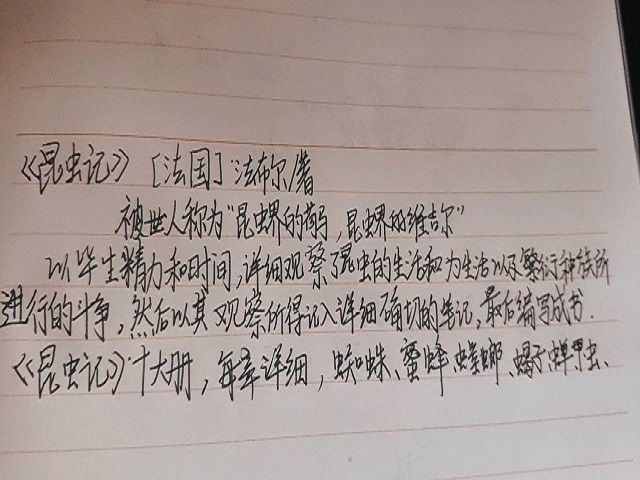 《昆虫记》 [法国] 法布尔/著
被世人称为"昆虫界的荷马,昆虫界的维吉尔"
以毕生精力和时间,详细观察了昆虫的生活和为生活以及繁衍种族所
进行的斗争,然后以其观察所得记入详细确切的笔记,最后编写成书.
《昆虫记》十大册,每章详细,蜘蛛、蜜蜂、螳螂、蝎子、蝉、甲虫、